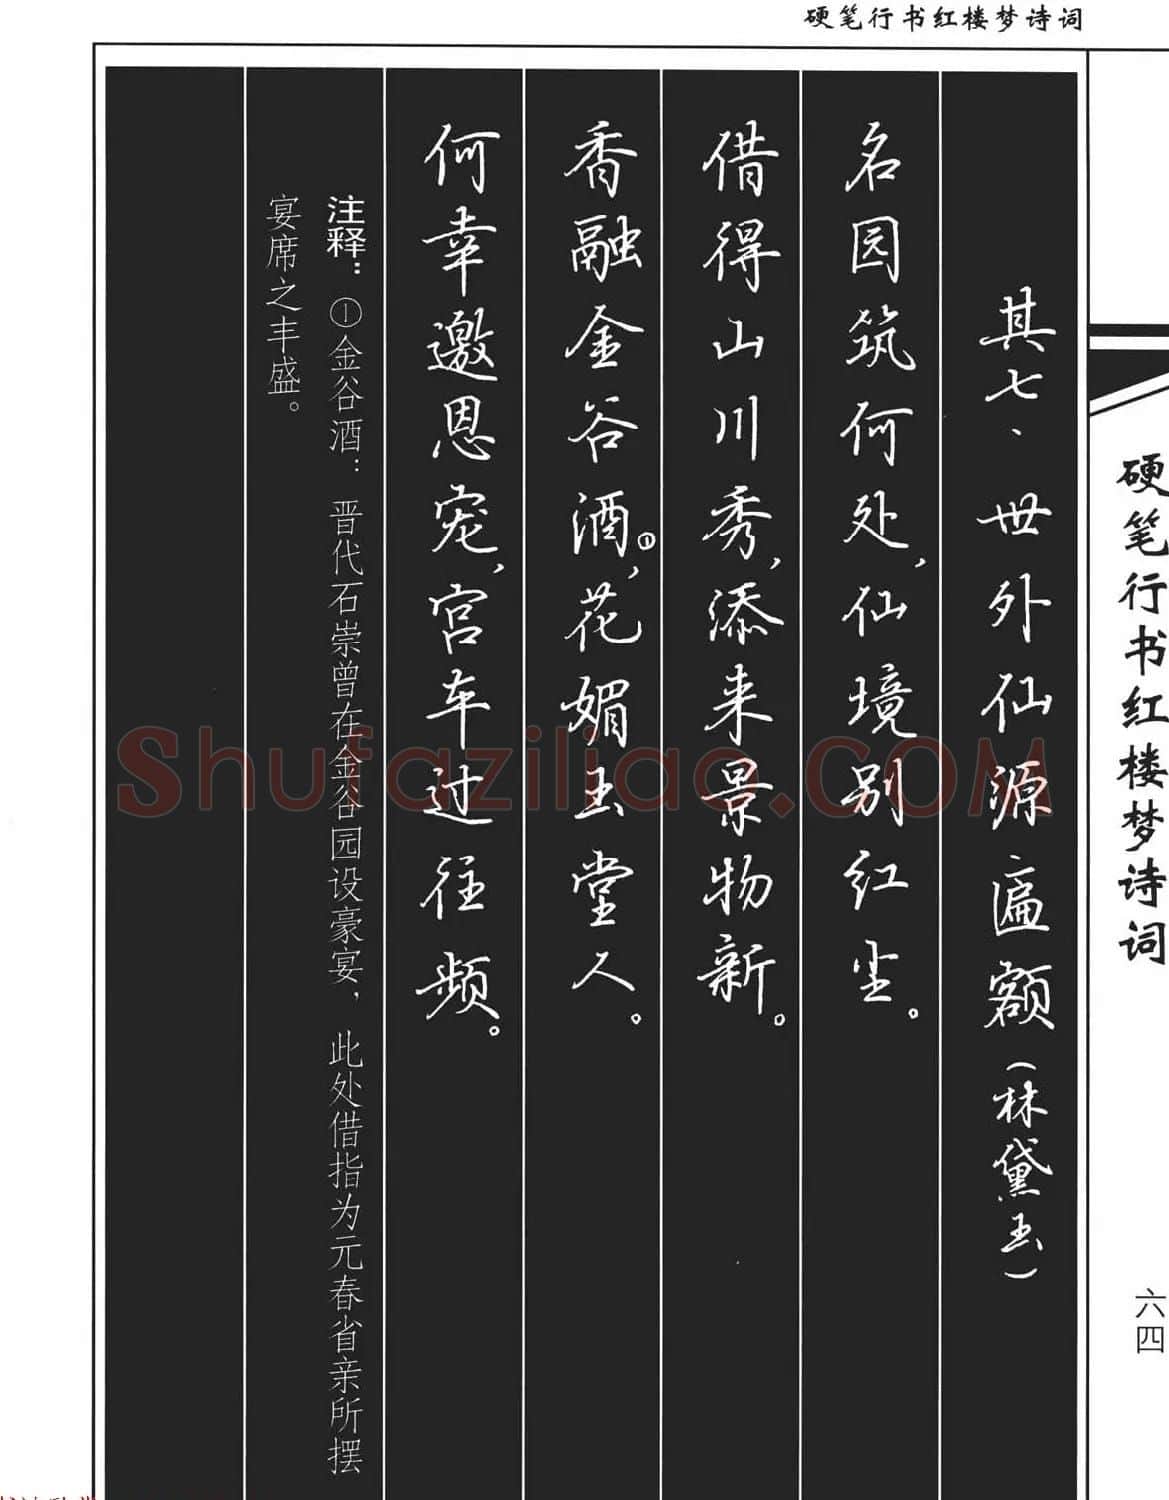 硬笔行书红楼梦诗词
硬笔行书红楼梦诗词
六四
其七、世外仙源匾额(林黛玉)
名园筑何处,仙境别红尘。
借得山川秀,添来景物新。
香融金谷酒①,花媚玉堂人。
何幸邀恩宠,宫车过往频。
注释:①金谷酒:晋代石崇曾在金谷园设豪宴,此处借指为元春省亲所摆
宴席之丰盛。
Shufaziliao.COM